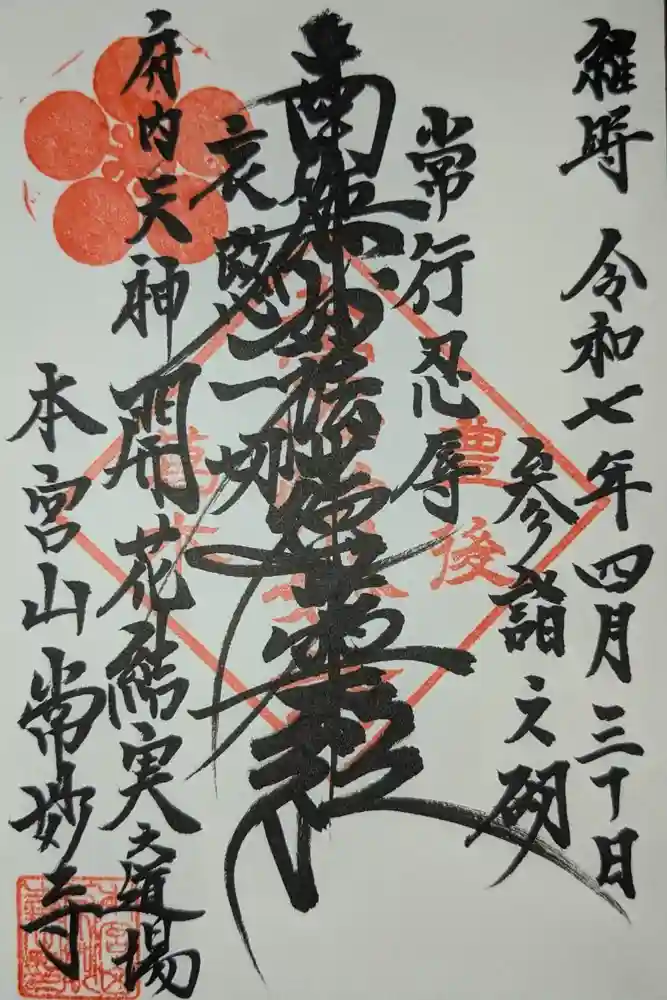 維時 令和七年四月三十日
参詣之砌
常行忍辱
南無妙法蓮華経
哀愍一切
府内天神 開花結実之道場
本宮山 常妙寺
豊後